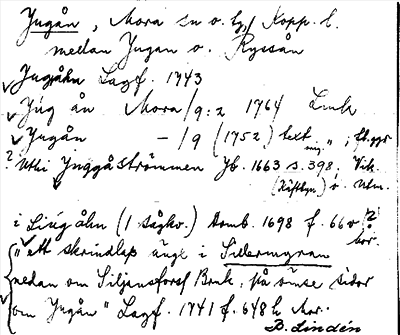 Jugån, Mora sn o. tg, Kopp. l.
mellan Jugan o. Ryssån
Jugåhn Lagf. 1743
Jug ån Mora/9:2 1764 Link
Jugån — /9 (1752) text
? Uthi Jnggåströmmen Jb. 1663 s. 398, Vik.
i Liúgåhn (1 sågkv.) Domb. 1698 f. 66 v
"ett skrindlass änge i Sillermyran
nedan om Siljansfors Bruk, på ömse sidor
om Jugån" Lagf. 1741 f. 648 h Mor.
B. Lindén